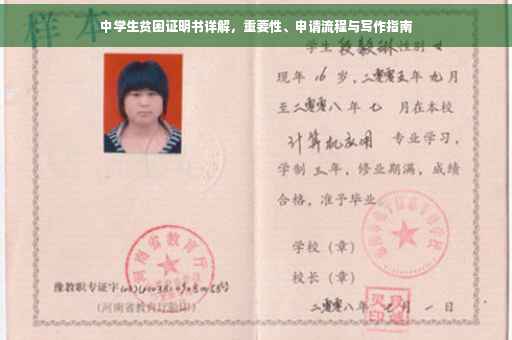 中学生贫困证明书详解，重要性、申请流程与写作指南
样本
学生 性别 女
现年 16 岁，二零零五年 九月
至二零零八年 七 月在本校
计算机应用 专业学习，
学制 三 年，修业期满，成绩
合格，准予毕业。
学校（章）
校长（章）
二零零八年 月 一 日
河南省教育厅
豫教职专证字
（河南省教育厅验印）